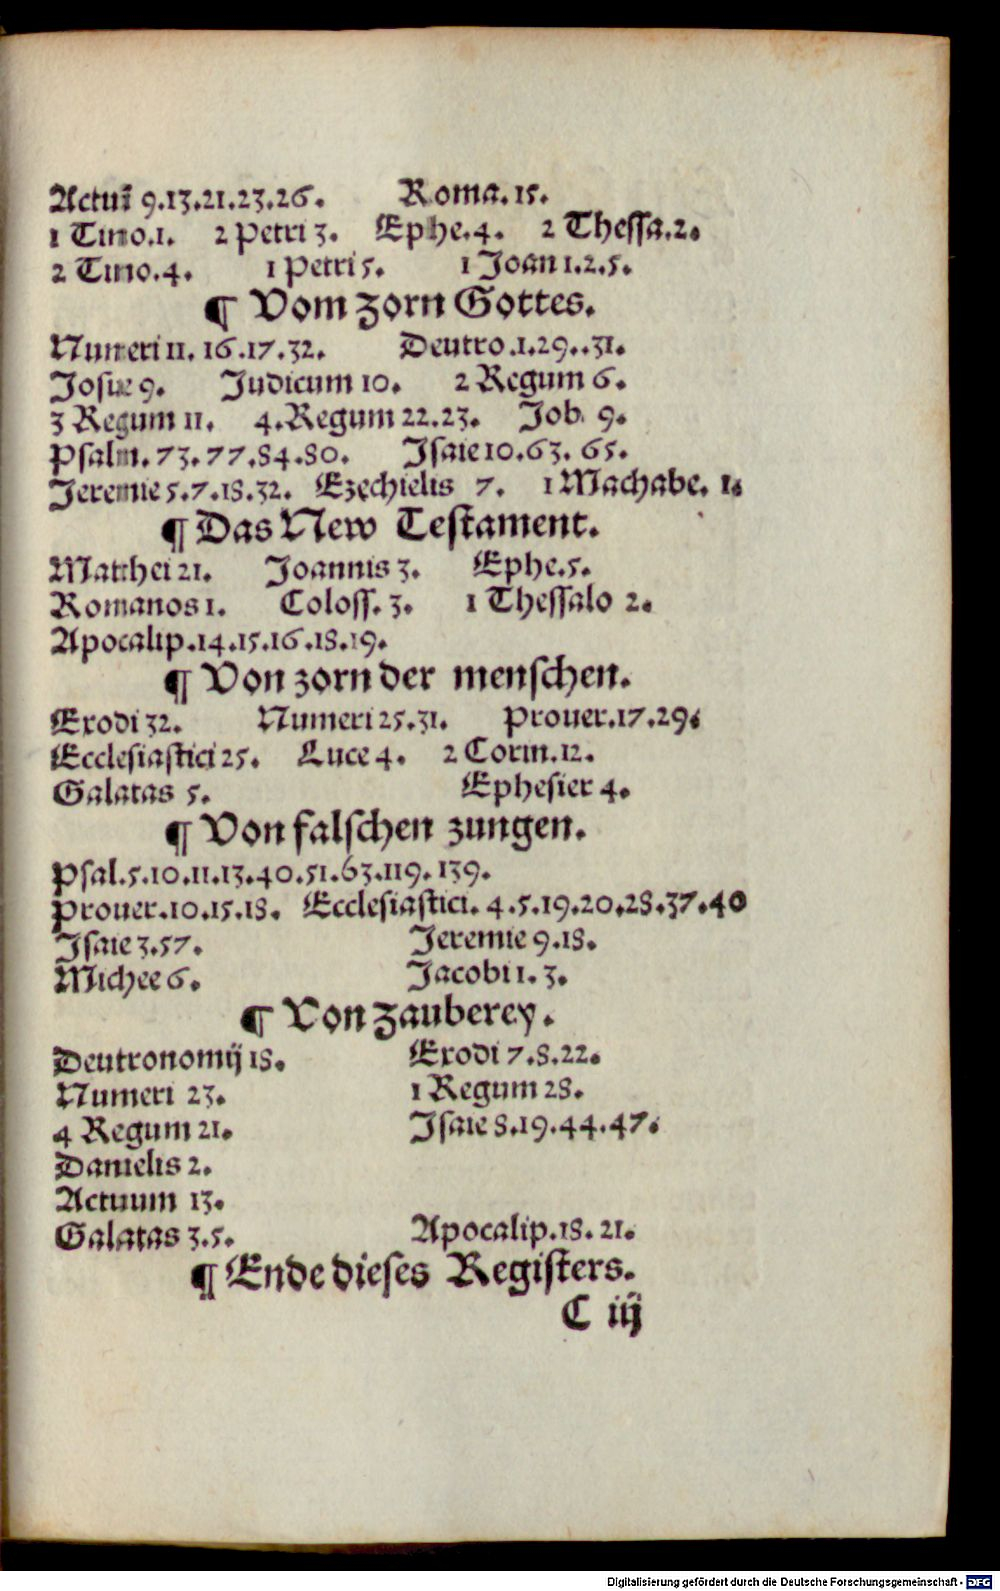 Actuū 9.13.21.23.26. Roma.15.
1 Timo.1. 2 Petri 3. Ephe.4. 2 Thessa.2.
2 Timo.4. 1 Petri 5. 1 Joan 1.2.5.
¶ Vom zorn Gottes.
Numeri 11. 16.17.32. Deutro.1.29..31.
Josue 9. Judicum 10. 2 Regum 6.
3 Regum 11. 4.Regum 22.23. Job. 9.
Psalm.73.77.84.80. Isaie 10.63. 65.
Jeremie 5.7.18.32. Ezechielis 7. 1 Machabe. 1.
¶ Das New Testament.
Matthei 21. Joannis 3. Ephe.5.
Romanos 1. Coloss. 3. 1 Thessalo 2.
Apocalip.14.15.16.18.19.
¶ Von zorn der menschen.
Exodi 32. Numeri 25.31. Prouer.17.29.
Ecclesiastici 25. Luce 4. 2 Corin.12.
Galatas 5. Ephesier 4.
¶ Von falschen zungen.
Psal.5.10.11.13.40.51.63.119.139.
Prouer.10.15.18. Ecclesiastici. 4.5.19.20.28.37.40
Isaie 3.57. Jeremie 9.18.
Michee 6. Jacobi 1.3.
¶ Von zauberey.
Deutronomij 18. Exodi 7.8.22.
Numeri 23. 1 Regum 28.
4 Regum 21. Isaie 8.19.44.47.
Danielis 2.
Actuum 13.
Galatas 3.5. Apocalip.18. 21.
¶ Ende dieses Registers.
C iij
Digitalisierung gefördert durch die Deutsche Forschungsgemeinschaft - DFG